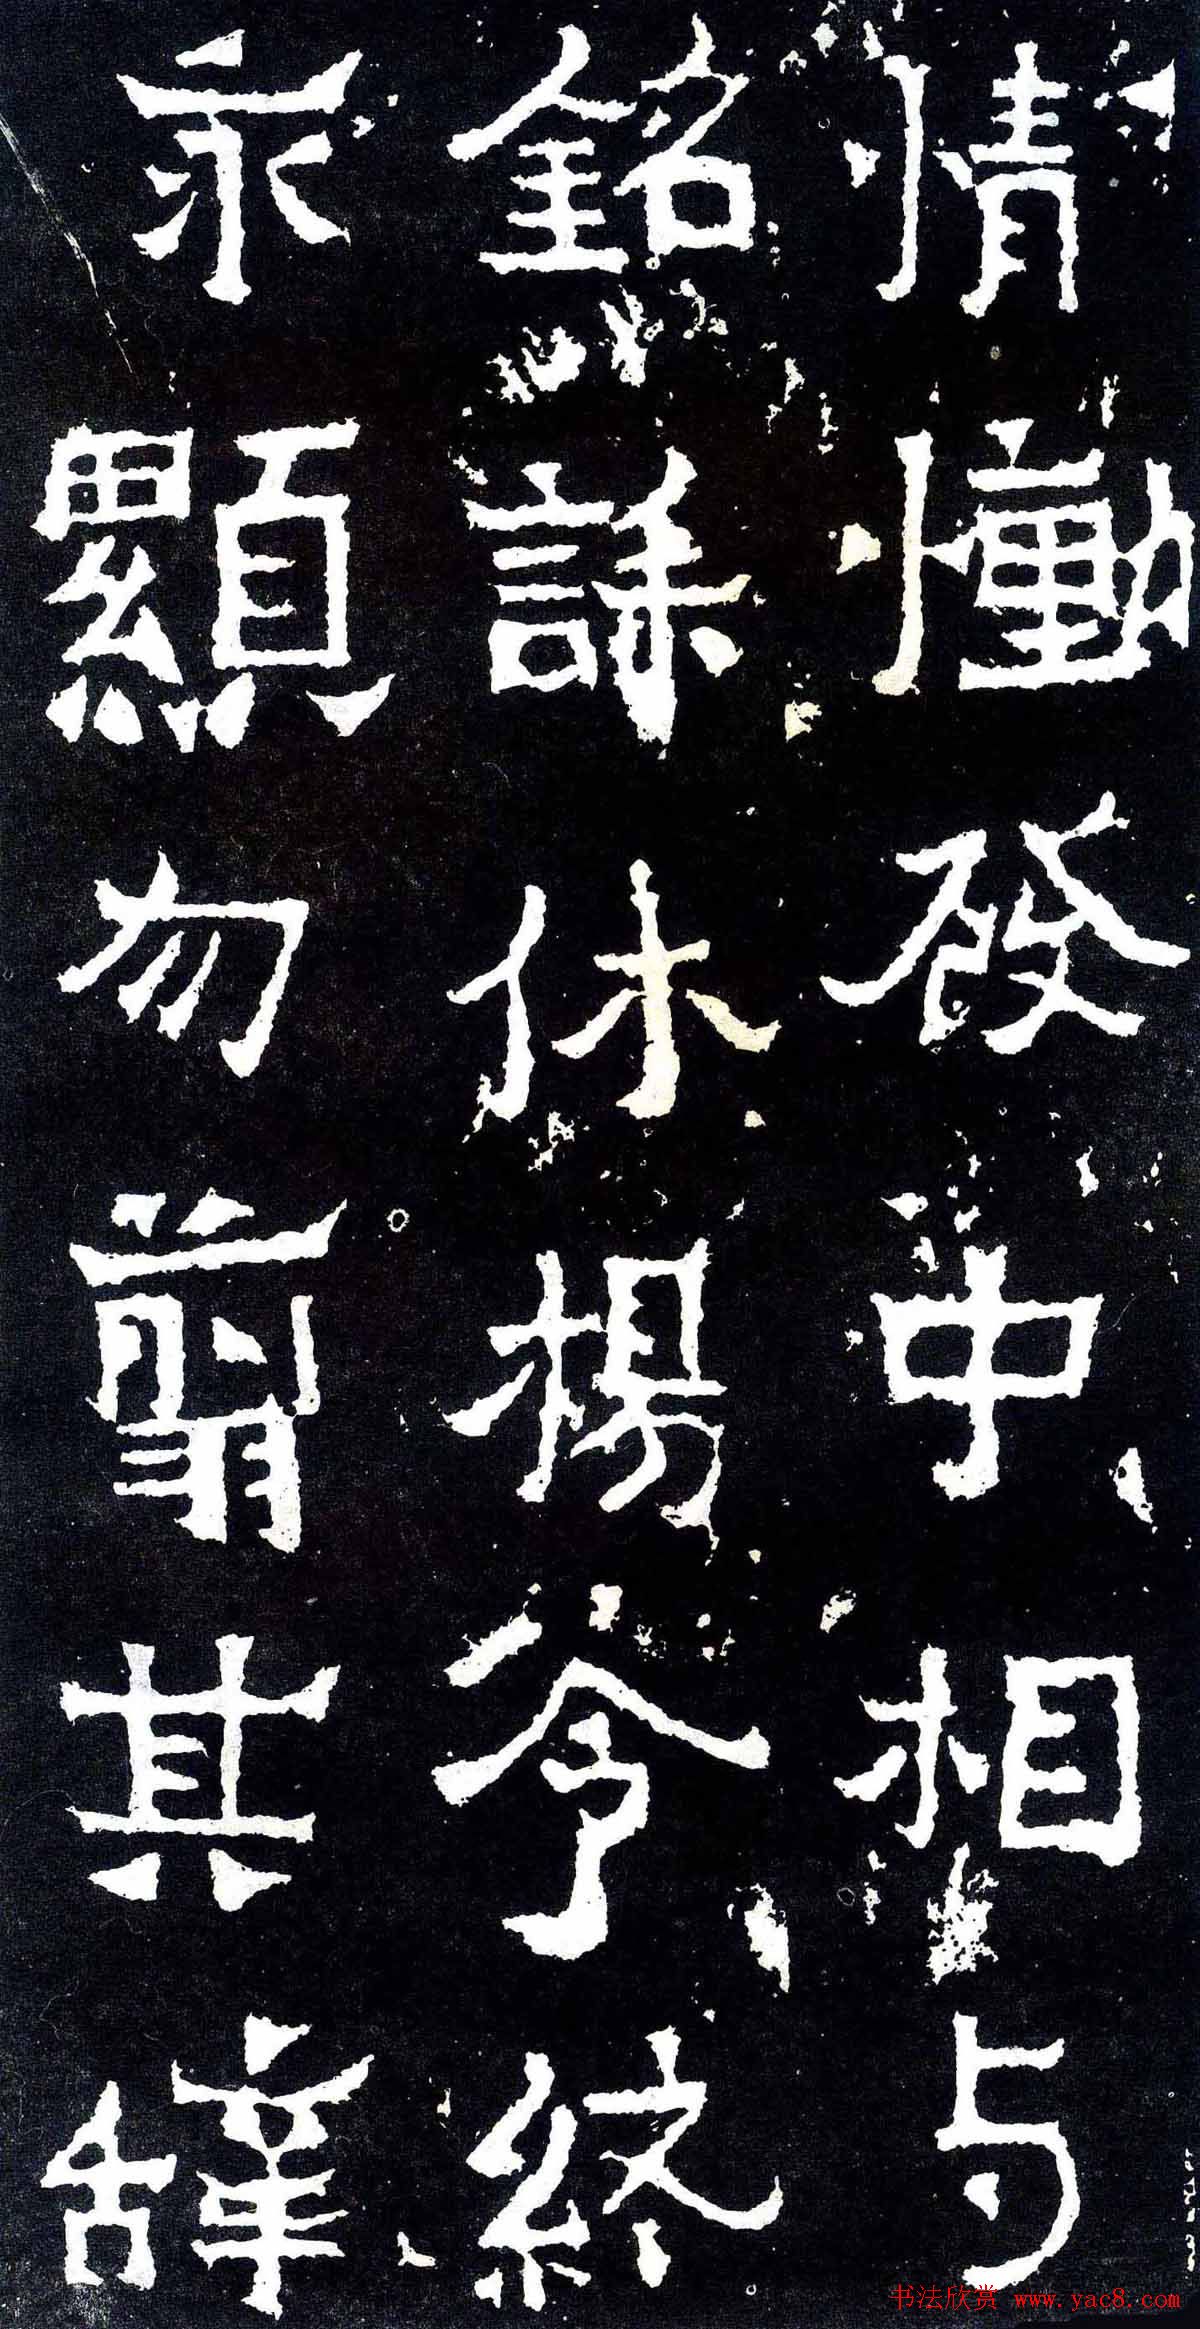 情慟發中相与
銘誄休楊令終
永顯勿翦其辞
书法欣赏 www.yac8.com